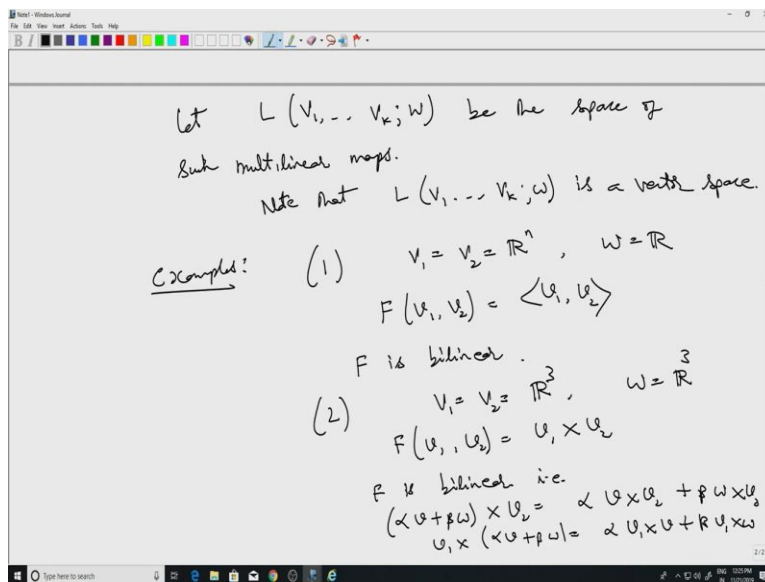 Note1 - Windows Journal
File Edit View Insert Actions Tools Help
B I
Let L (V₁, -- Vₖ; W) be the space of
such multilinear maps.
Note that L (V₁ --- Vₖ; W) is a vector space.
Examples: (1) V₁ = V₂ = ℝⁿ, W = ℝ
F (v₁, v₂) = <v₁, v₂>
F is bilinear.
(2) V₁ = V₂ = ℝ³, W = ℝ³
F (v₁, v₂) = v₁ × v₂
F is bilinear i.e.
(αv + βw) × v₂ = α v × v₂ + β w × v₂
v₁ × (αv + βw) = α v₁ × v + β v₁ × w
2/2
Type here to search
ENG 12:25 PM
IN 11/21/2019